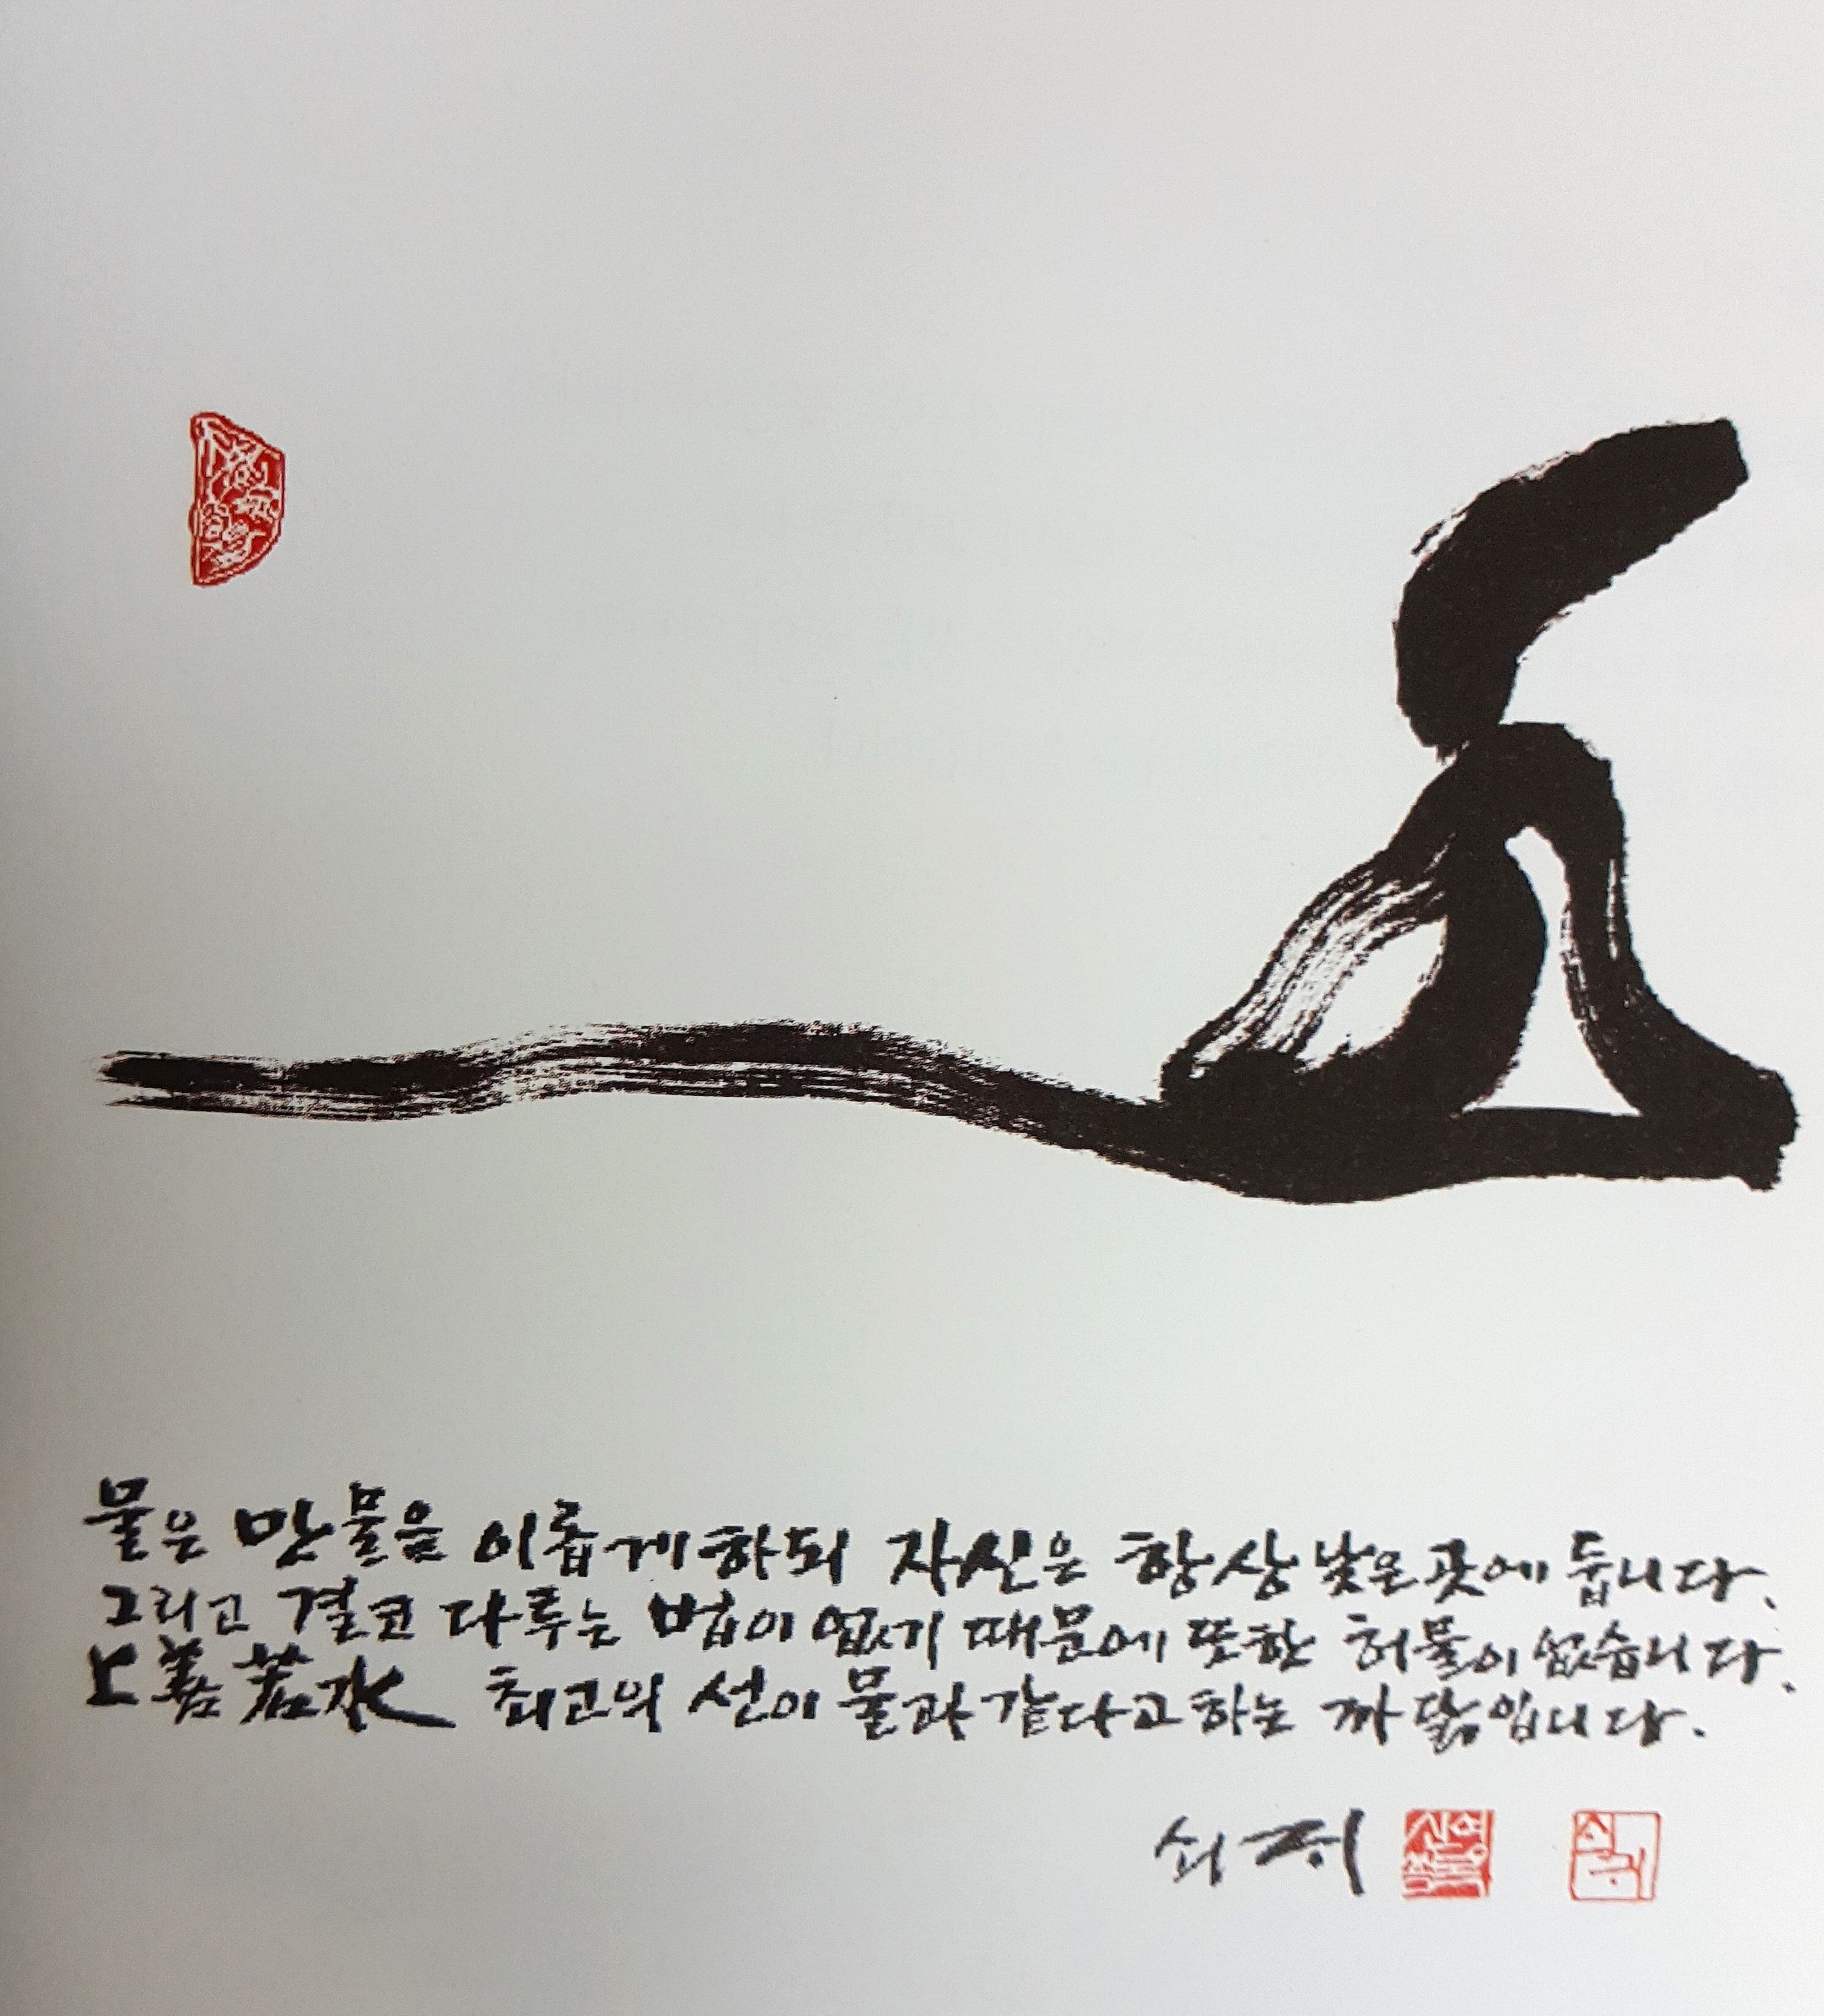 물은 만물을 이롭게 하되 자신은 항상 낮은 곳에 둡니다.
그리고 결코 다투는 법이 없기 때문에 또한 허물이 없습니다.
上善若水 최고의 선이 물과 같다고 하는 까닭입니다.
쇠귀